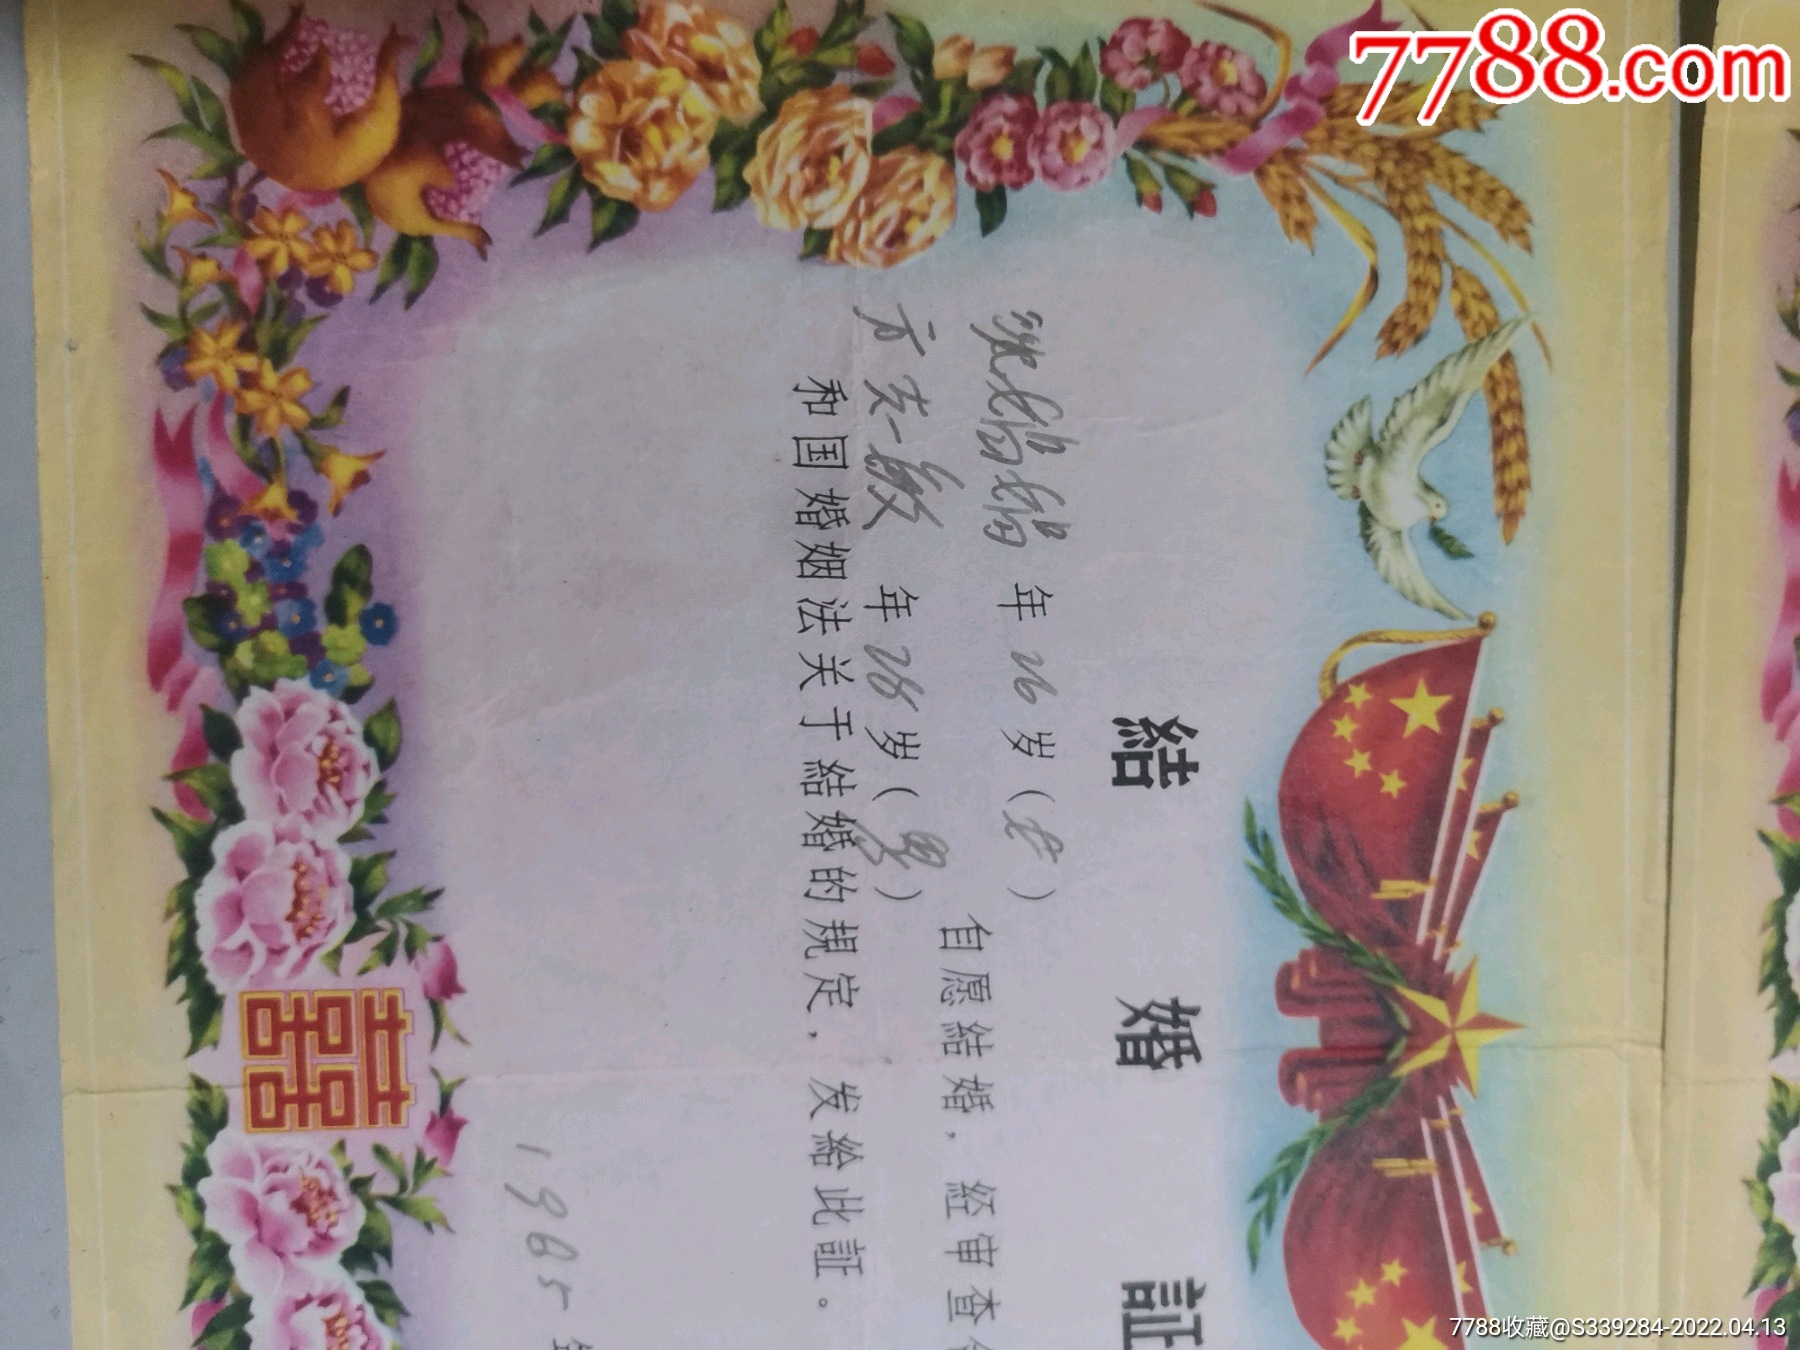 7788.com
結 婚 証
張娟娟 年 26 岁（女）
方志敏 年 28 岁（男）
自愿結婚，经审查
和国婚姻法关于結婚的規定，发給此証。
囍
1985
7788收藏@S339284-2022.04.13